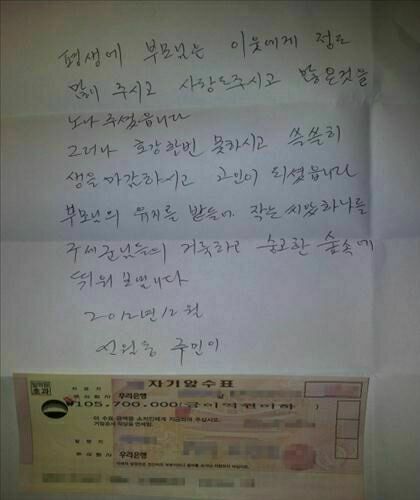 평생에 부모님은 이웃에게 정도
많이 주시고 사랑도주시고 많은것을
노나 주셨읍니다
그러나 호강 한번 못하시고 쓸쓸히
생을 마감하시고 고인이 되셨읍니다
부모님의 유지를 받들어 작은 씨앗하나를
구세군님들의 거룩하고 숭고한 숲속에
띄워 보냅니다
2012년 12월
신월동 주민이
자기앞수표
우리은행
₩105,700,000(금이억원이하
이 수표 금액을 소지인에게 지급하여 주십시오.
우리은행